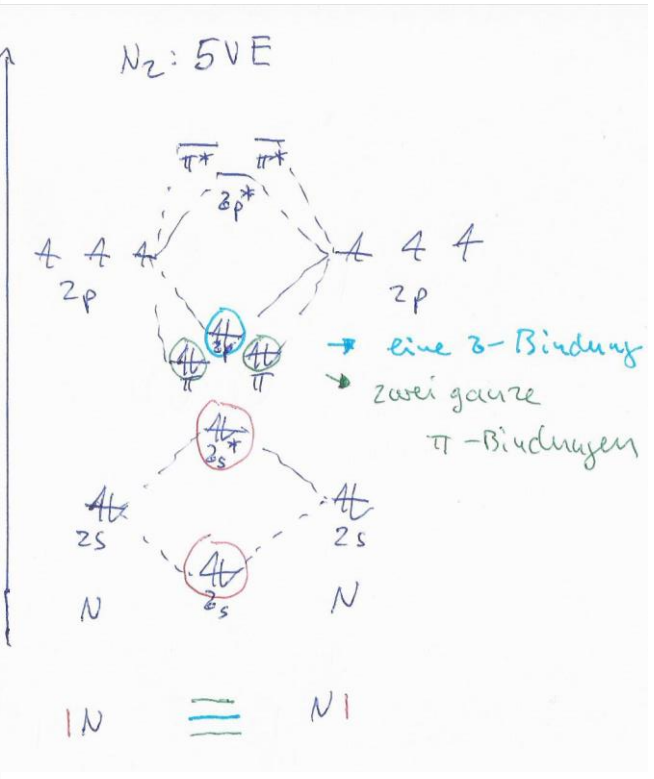 N₂: 5VE
π* π*
σp*
2p 2p
σp
π π
→ eine σ-Bindung
→ zwei ganze
π-Bindungen
σs*
2s 2s
σs
N N
|N ≡ N|